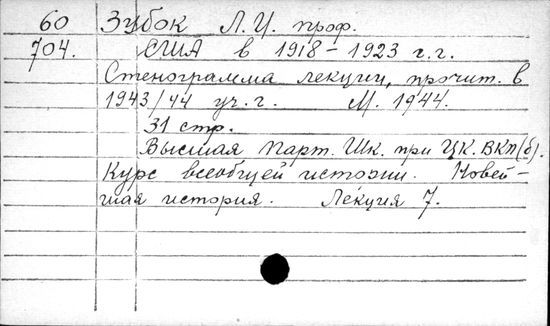 60 Зубок Л.И. проф.
704. США в 1918-1923 г.г.
Стенограмма лекции, прочит. в
1943/44 уч. г. М. 1944.
31 стр.
Высшая Парт. Шк. при ЦК. ВКП(б).
Курс всеобщей истории. Новей-
шая история. Лекция 7.